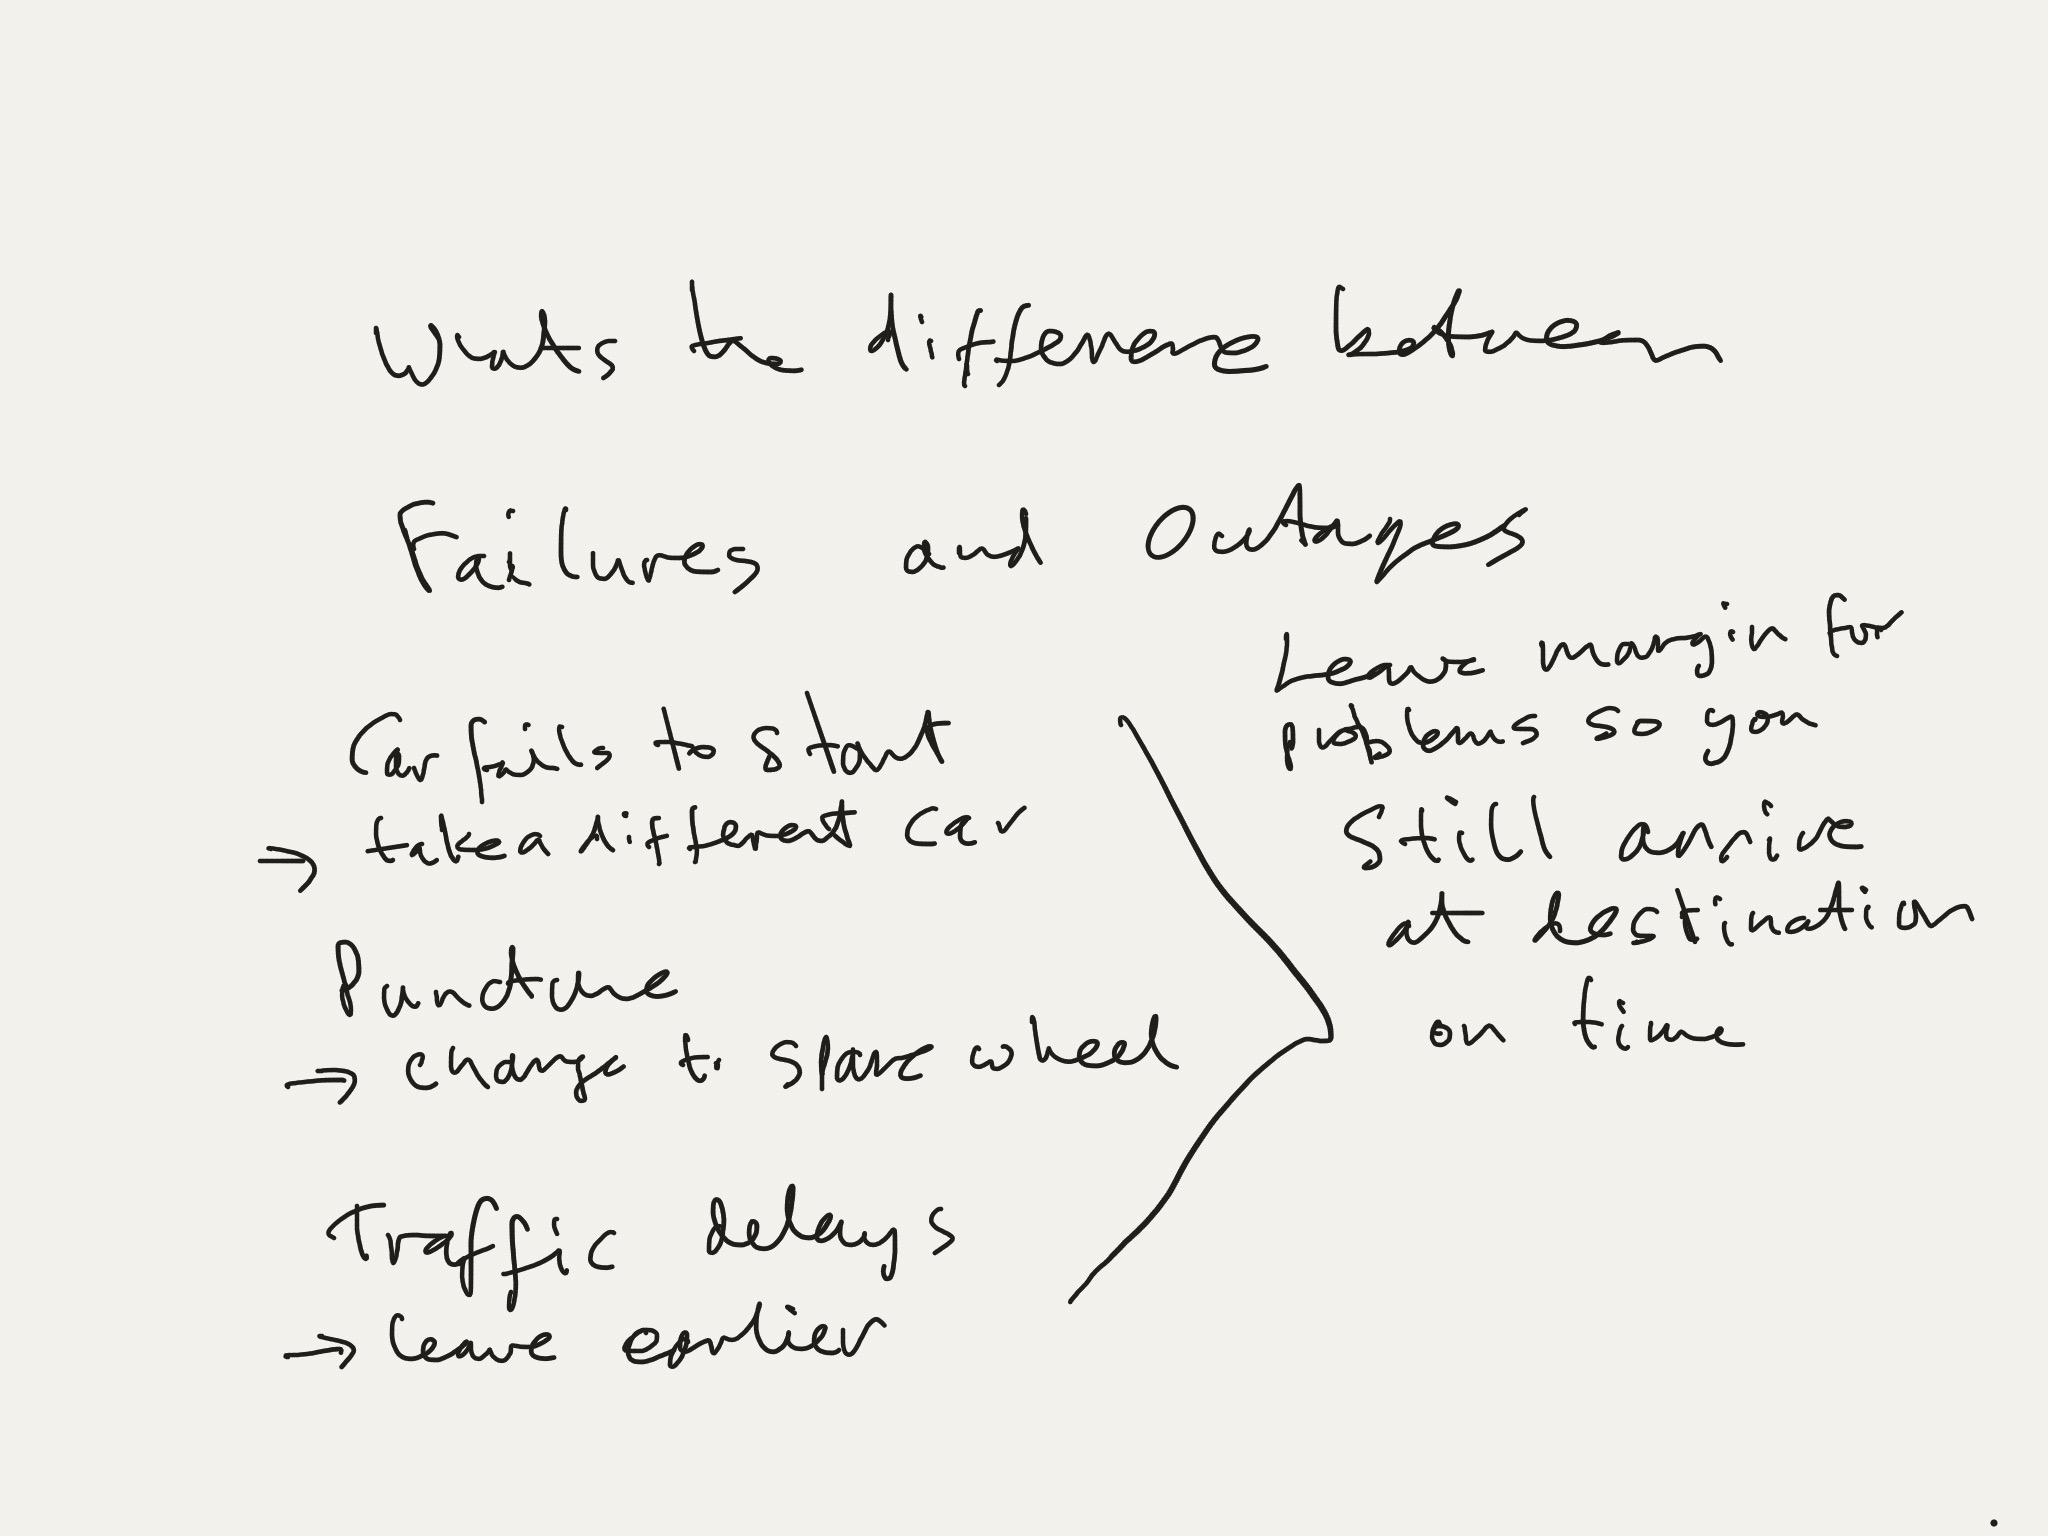 Whats the difference between
Failures and Outages
Car fails to start
→ take a different car
Puncture
→ change to spare wheel
Traffic delays
→ leave earlier
Leave margin for
problems so you
still arrive
at destination
on time